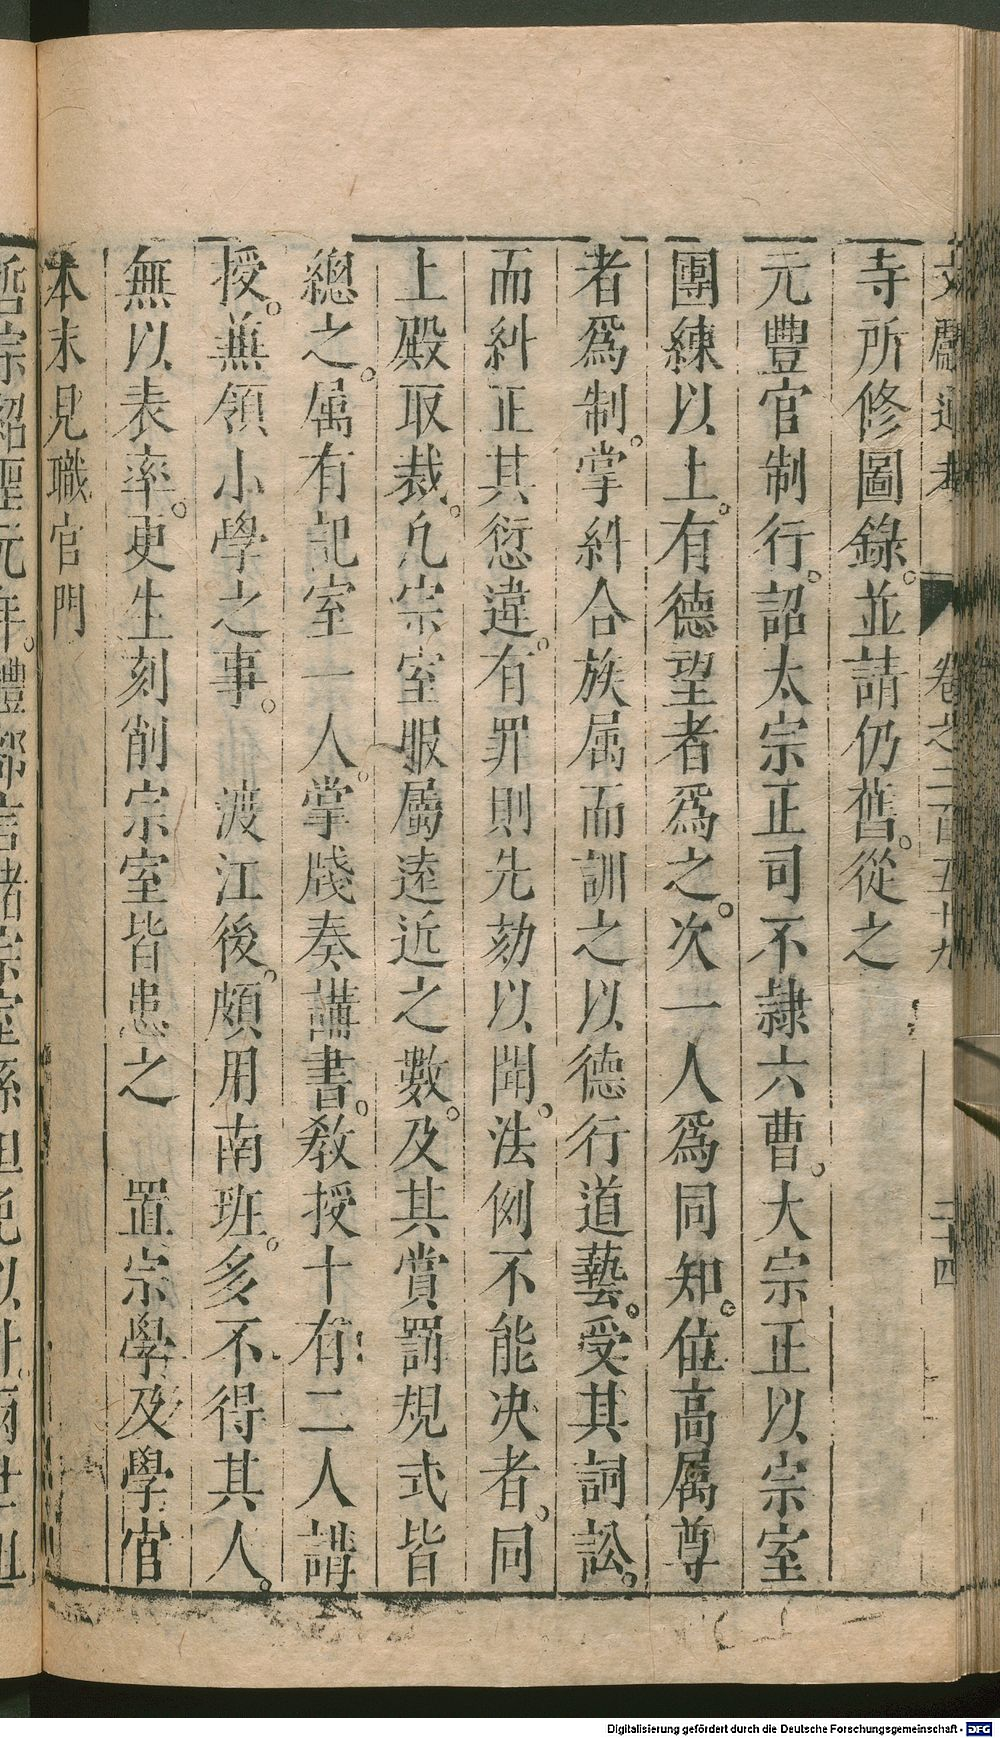 文獻通考 卷之二百五十九 二十四
寺所修圖錄。並請仍舊。從之
元豐官制行。詔太宗正司不隷六曹。大宗正以宗室
團練以上。有德望者爲之。次一人爲同知。位高属尊
者爲制。掌糾合族属而訓之以德行道藝。受其詞訟。
而糾正其愆違。有罪則先劾以聞。法例不能决者。同
上殿取裁。凢宗室服屬遠近之數。及其賞罰規式皆
總之。属有記室一人。掌牋奏講書。教授十有二人講
授。兼領小學之事。 渡江後。頗用南班。多不得其人。
無以表率。更生刻削宗室皆患之 置宗學及學官
本末見職官門
哲宗紹聖元年。禮部言諸宗室係袒免以外。兩世袒
Digitalisierung gefördert durch die Deutsche Forschungsgemeinschaft - DFG